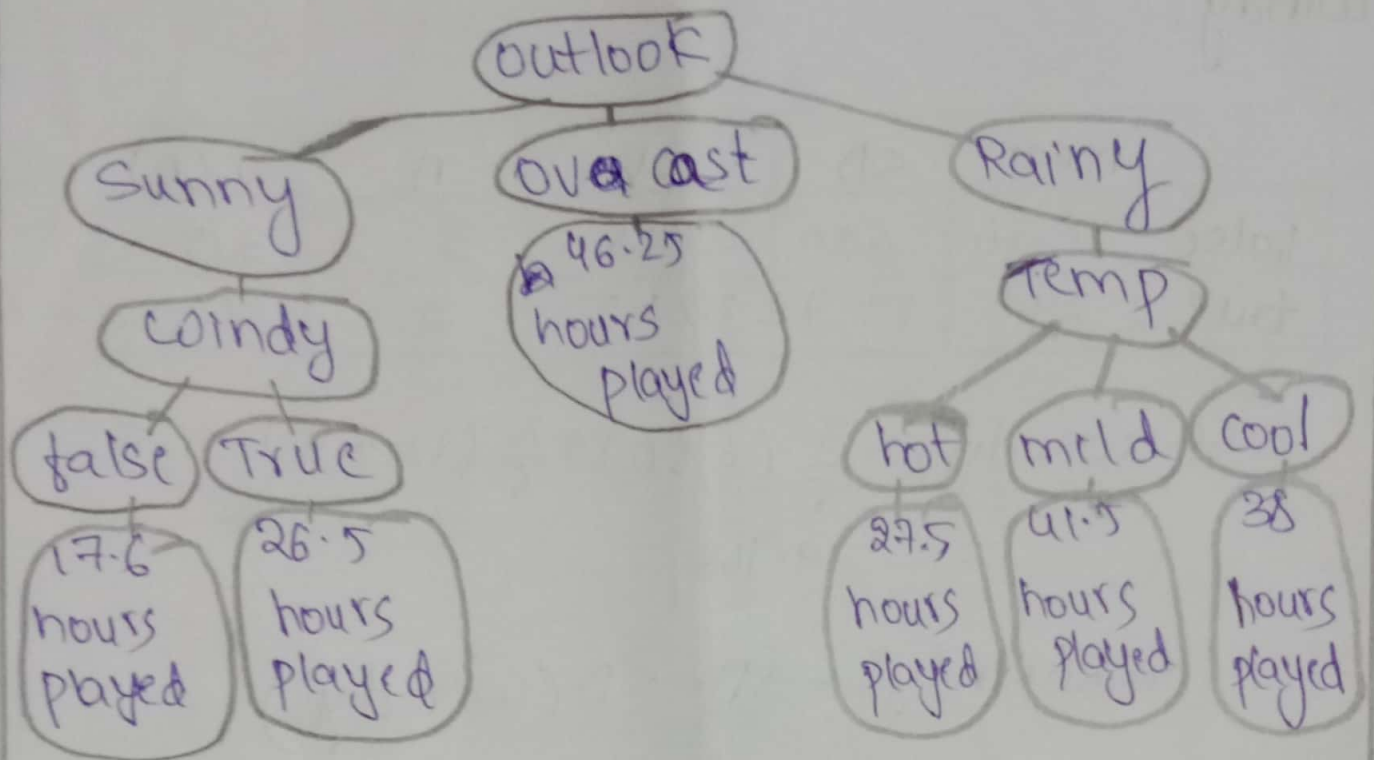 outlook
Sunny
over cast
Rainy
windy
46.25
hours
played
Temp
false
True
hot
mild
cool
17.6
hours
played
26.5
hours
played
27.5
hours
played
41.5
hours
played
38
hours
played